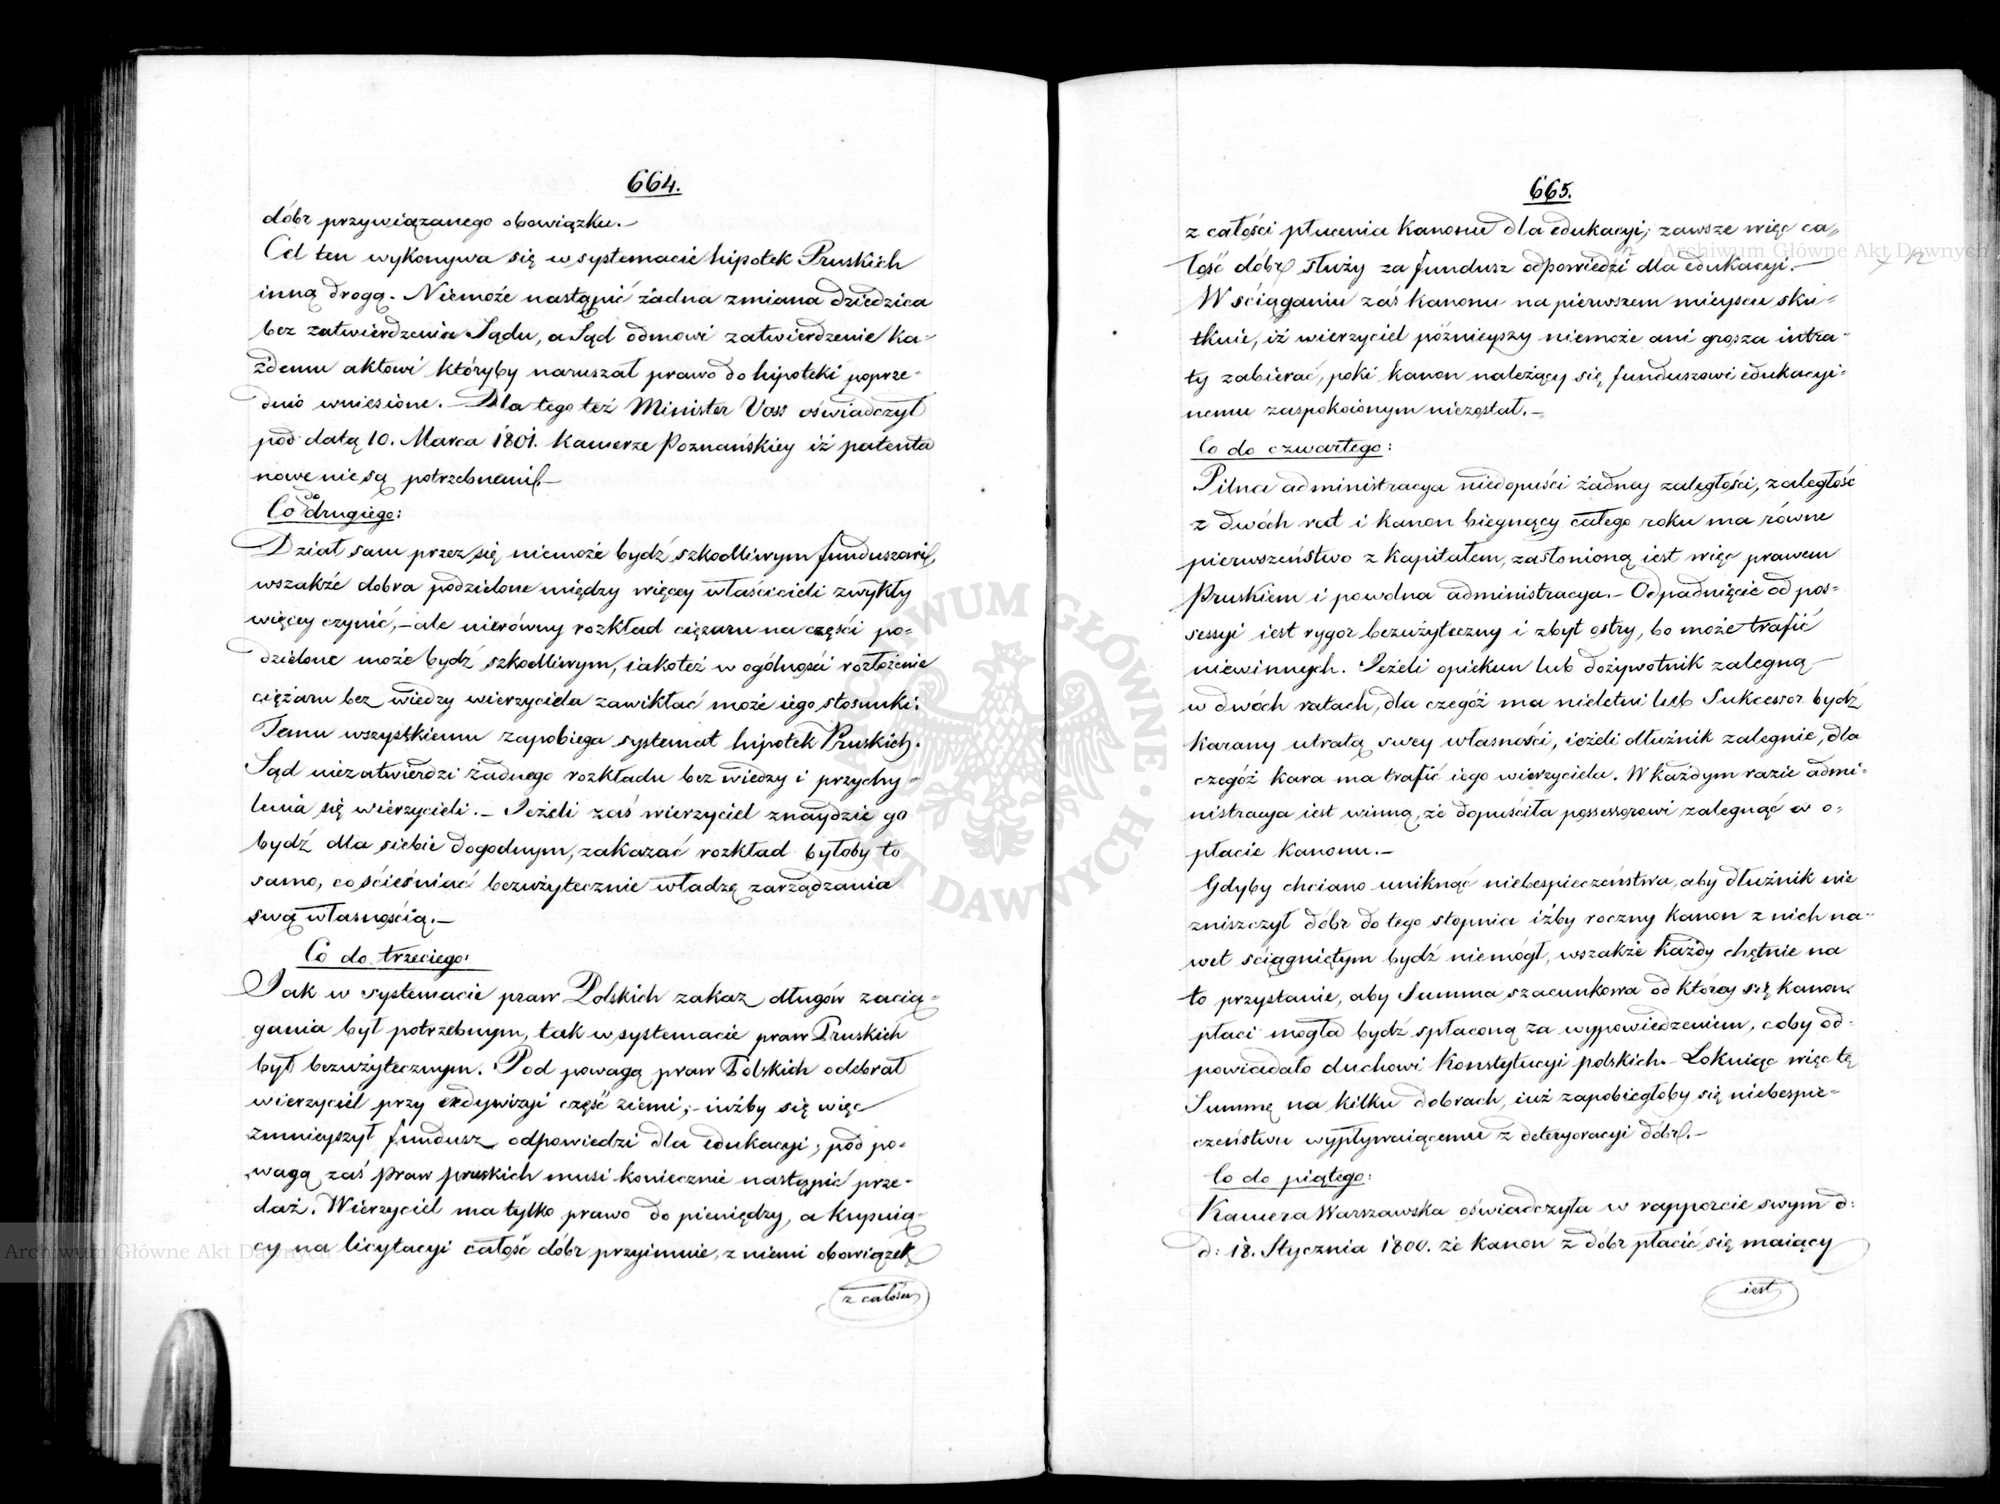 664.
dóbr przywiązanego obowiązku.—
Cel ten wykonywa się w systemacie hipotek Pruskich
inną drogą. Niemoże nastąpić żadna zmiana dziedzica
bez zatwierdzenia Sądu, a Sąd odmowi zatwierdzenie ka=
żdemu aktowi któryby naruszał prawo do hipoteki poprze=
dnio wniesione.— Dla tego też Minister Voss oświadczył
pod datą 10. Marca 1801. Kamerze Poznańskiey iż patenta
nowe nie są potrzebnemi.—
Co do drugiego:
Dział sam przez się niemoże bydź szkodliwym funduszowi,
wszakże dobra podzielone między więcey właścicieli zwykły
więcey czynić,— ale nierówny rozkład ciężaru na części po=
dzielone może bydź szkodliwym, iakoteż w ogólności rozłożenie
ciężaru bez wiedzy wierzyciela zawikłać może iego stosunki.
Temu wszystkiemu zapobiega systemat hipotek Pruskich.
Sąd niezatwierdzi żadnego rozkładu bez wiedzy i przychy=
lenia się wierzycieli.— Jeżeli zaś wierzyciel znaydzie go
bydź dla siebie dogodnym, zakazać rozkład byłoby to
samo, co ścieśniać bezużytecznie władzę zarządzania
swą własnością.—
Co do trzeciego:
Jak w systemacie praw Polskich zakaz długów zacią=
gania był potrzebnym, tak w systemacie praw Pruskich
był bezużytecznym. Pod powagą praw Polskich odebrał
wierzyciel przy exdywizyi część ziemi;— iużby się więc
zmnieyszył fundusz odpowiedzi dla edukacyi; pod po=
wagą zaś praw pruskich musi koniecznie nastąpić prze=
daż. Wierzyciel ma tylko prawo do pieniędzy, a kupuią=
cy na licytacyi całość dóbr przyimuie, z niemi obowiązek
z całości
665.
z całości płacenia Kanonu dla edukacyi; zawsze więc ca=
łość dóbr służy za fundusz odpowiedzi dla edukacyi.—
W ściąganiu zaś Kanonu na pierwszem mieyscu sku=
tkuie, iż wierzyciel późnieyszy niemoże ani grosza intra=
ty zabierać, poki kanon należący się funduszowi edukacyi=
nemu zaspokoionym niezostał.—
Co do czwartego:
Pilna administracya niedopuści żadney zaległości, zaległość
z dwóch rat i kanon biegnący całego roku ma równe
pierwszeństwo z kapitałem, zasłonioną iest więc prawem
Pruskiem i powolna administracya.— Odpadnięcie od pos=
sessyi iest rygor bezużyteczny i zbyt ostry, bo może trafić
niewinnych. Jeżeli opiekun lub dożywotnik zalegną
w dwóch ratach, dla czegóż ma nieletni lub Sukcessor bydź
karany utratą swey własności, ieżeli dłużnik zalegnie, dla
czegóż kara ma trafić iego wierzyciela. W każdym razie admi=
nistracya iest winną, że dopuściła possessorowi zalegnąć w o=
płacie kanonu.—
Gdyby chciano uniknąć niebespieczeństwa, aby dłużnik nie
zniszczył dóbr do tego stopnia iżby roczny kanon z nich na=
wet ściągniętym bydź niemógł, wszakże każdy chętnie na
to przystanie, aby Summa szacunkowa od którey się kanon
płaci mogła bydź spłaconą za wypowiedzeniem, coby od=
powiadało duchowi Konstytucyi polskich.— Lokuiąc więc tę
Summę na kilku dobrach, iuż zapobiegłoby się niebespie=
czeństwu wypływaiącemu z deteryoracyi dóbr.—
Co do piątego:
Kamera Warszawska oświadczyła w rapporcie swym d:
d: 18. Stycznia 1800. że kanon z dóbr płacić się maiący
iest
Archiwum Główne Akt Dawnych
Archiwum Główne Akt Dawnych
ARCHIWUM GŁÓWNE AKT DAWNYCH